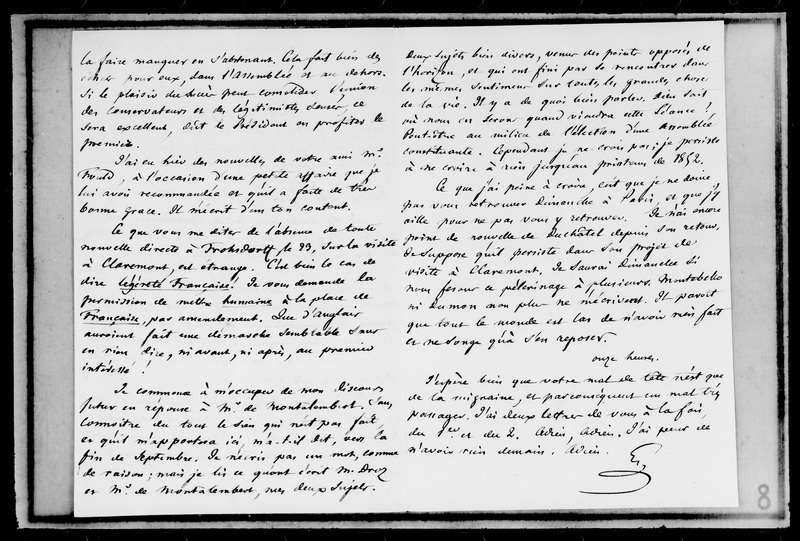 la faire manquer en s'abstenant. Cela fait bien des
échecs pour eux, dans l'assemblée et au dehors.
Si le plaisir du succès peut consolider l'union
des conservateurs et des légitimistes sensés, ce
sera excellent, dût le Président en profiter le
premier.
J'ai eu hier des nouvelles de votre ami Mr.
Fould, à l'occasion d'une petite affaire que je
lui avois recommandée et qu'il a faite de très
bonne grace. Il m'écrit d'un ton content.
Ce que vous me dites de l'absence de toute
nouvelle directe à Frohsdorff, le 23, sur la visite
à Claremont, est étrange. C'est bien le cas de
dire légèreté Française. Je vous demande la
permission de mettre humaine à la place de
Française, par amendement. Que d'anglais
auroient fait une démarche semblable sans
en rien dire, ni avant, ni après, au premier
intéressé !
Je commence à m'occuper de mon discours
futur en réponse à Mr. de Montalembert. Sans
connoître du tout le sien qui n'est pas fait
et qu'il m'apportera ici, m'a-t-il dit, vers la
fin de Septembre. Je n'écris pas un mot, comme
de raison ; mais je lis ce qu'ont écrit M. Droz
et Mr. de Montalembert, mes deux sujets.
Deux sujets bien divers, venus des points opposés de
l'horizon, et qui ont fini par se rencontrer dans
les mêmes sentimens sur toutes les grandes choses
de la vie. Il y a de quoi bien parler. Dieu sait
où nous en serons quand viendra cette séance !
Peut-être au milieu de l'élection d'une assemblée
constituante. Cependant je ne crois pas ; je persiste
à ne croire à rien jusqu'au printems de 1852.
Ce que j'ai peine à croire, c'est que je ne doive
pas vous retrouver Dimanche à Paris, et que j'y
aille pour ne pas vous y retrouver. Je n'ai encore
point de nouvelle de Duchâtel depuis son retour.
Je suppose qu'il persiste dans son projet de
visite à Claremont. Je saurai Dimanche si
nous ferons ce pélerinage à plusieurs. Montebello
ni Dumon non plus ne m'écrivent. Il paroît
que tout le monde est las de n'avoir rien fait
et ne songe qu'à s'en reposer.
onze heures.
J'espère bien que votre mal de tête n'est que
de la migraine, et par conséquent un mal très
passager. J'ai deux lettres de vous à la fois,
du 1er. et du 2. Adieu, Adieu. J'ai peur de
n'avoir rien demain. Adieu.
8